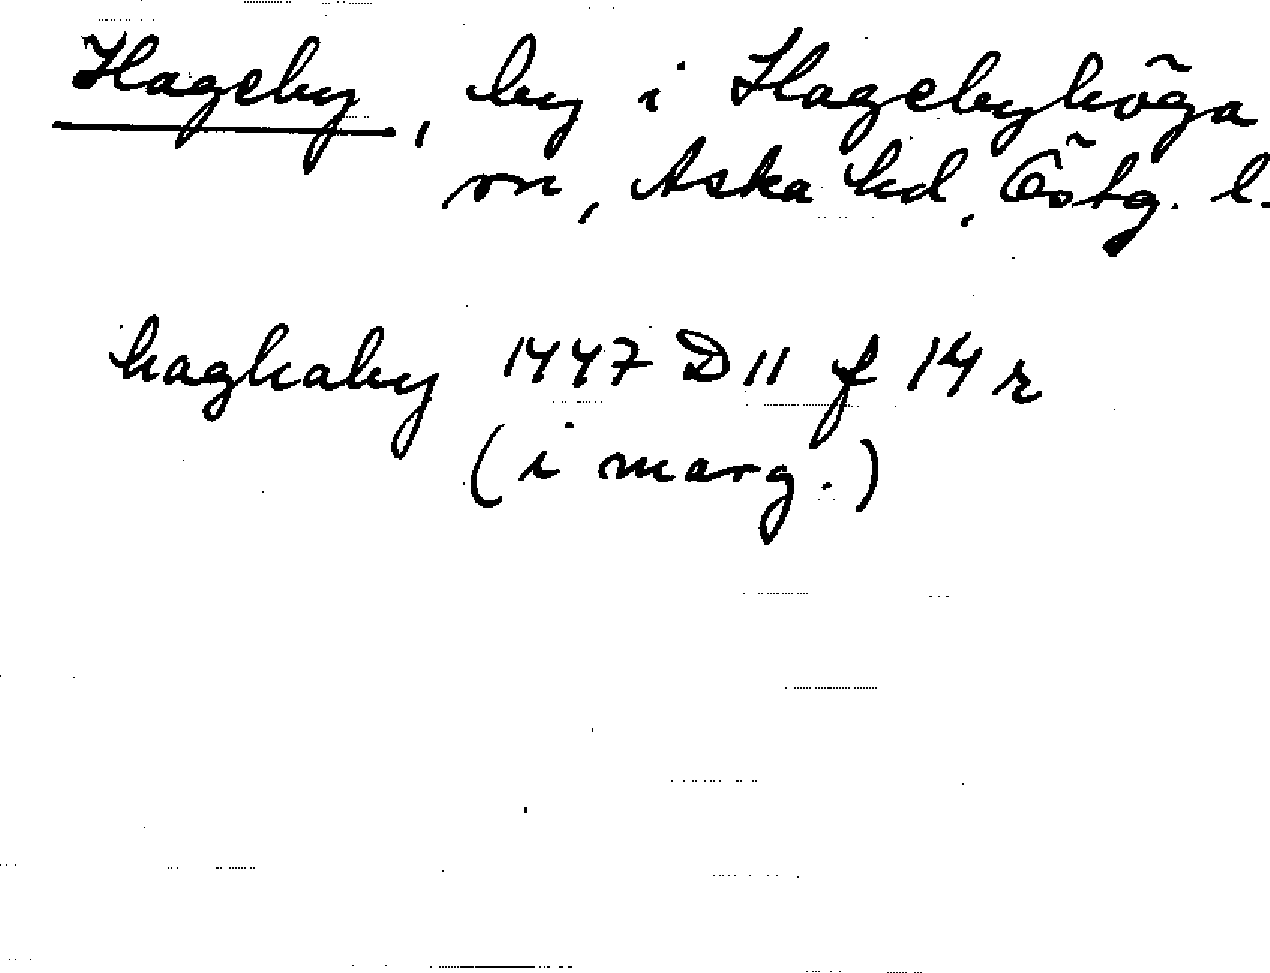 Hageby, by i Hagebyhöga
sn, Aska hd, Östg. l.
haghaby 1447 D 11 f 14 r
(i marg.)